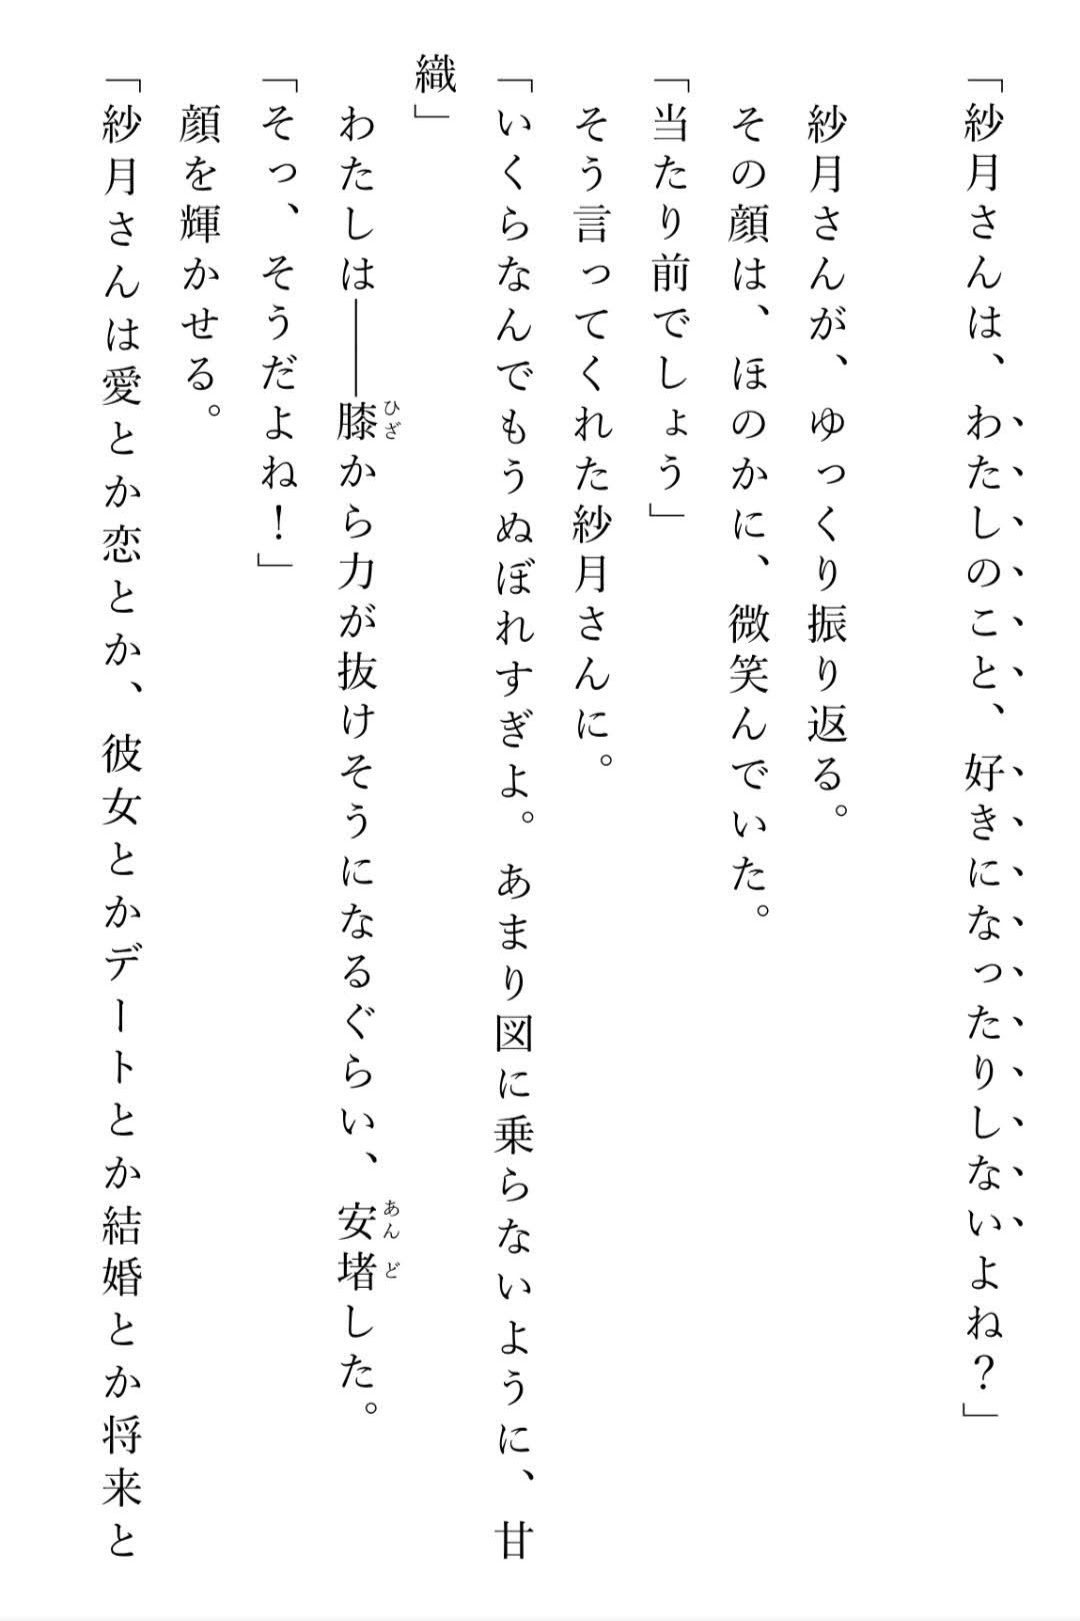 「紗月さんは、わたしのこと、好きになったりしないよね？」
紗月さんが、ゆっくり振り返る。
その顔は、ほのかに、微笑んでいた。
「当たり前でしょう」
そう言ってくれた紗月さんに。
「いくらなんでもうぬぼれすぎよ。あまり図に乗らないように、甘
織」
わたしは――膝から力が抜けそうになるぐらい、安堵した。
ひざ
あんど
「そっ、そうだよね！」
顔を輝かせる。
「紗月さんは愛とか恋とか、彼女とかデートとか結婚とか将来と